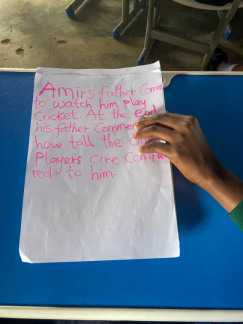 Amir's father Come
to watch him play
Cricket. At the end
his father Commen
how tall the
Players are Compa
red to him.